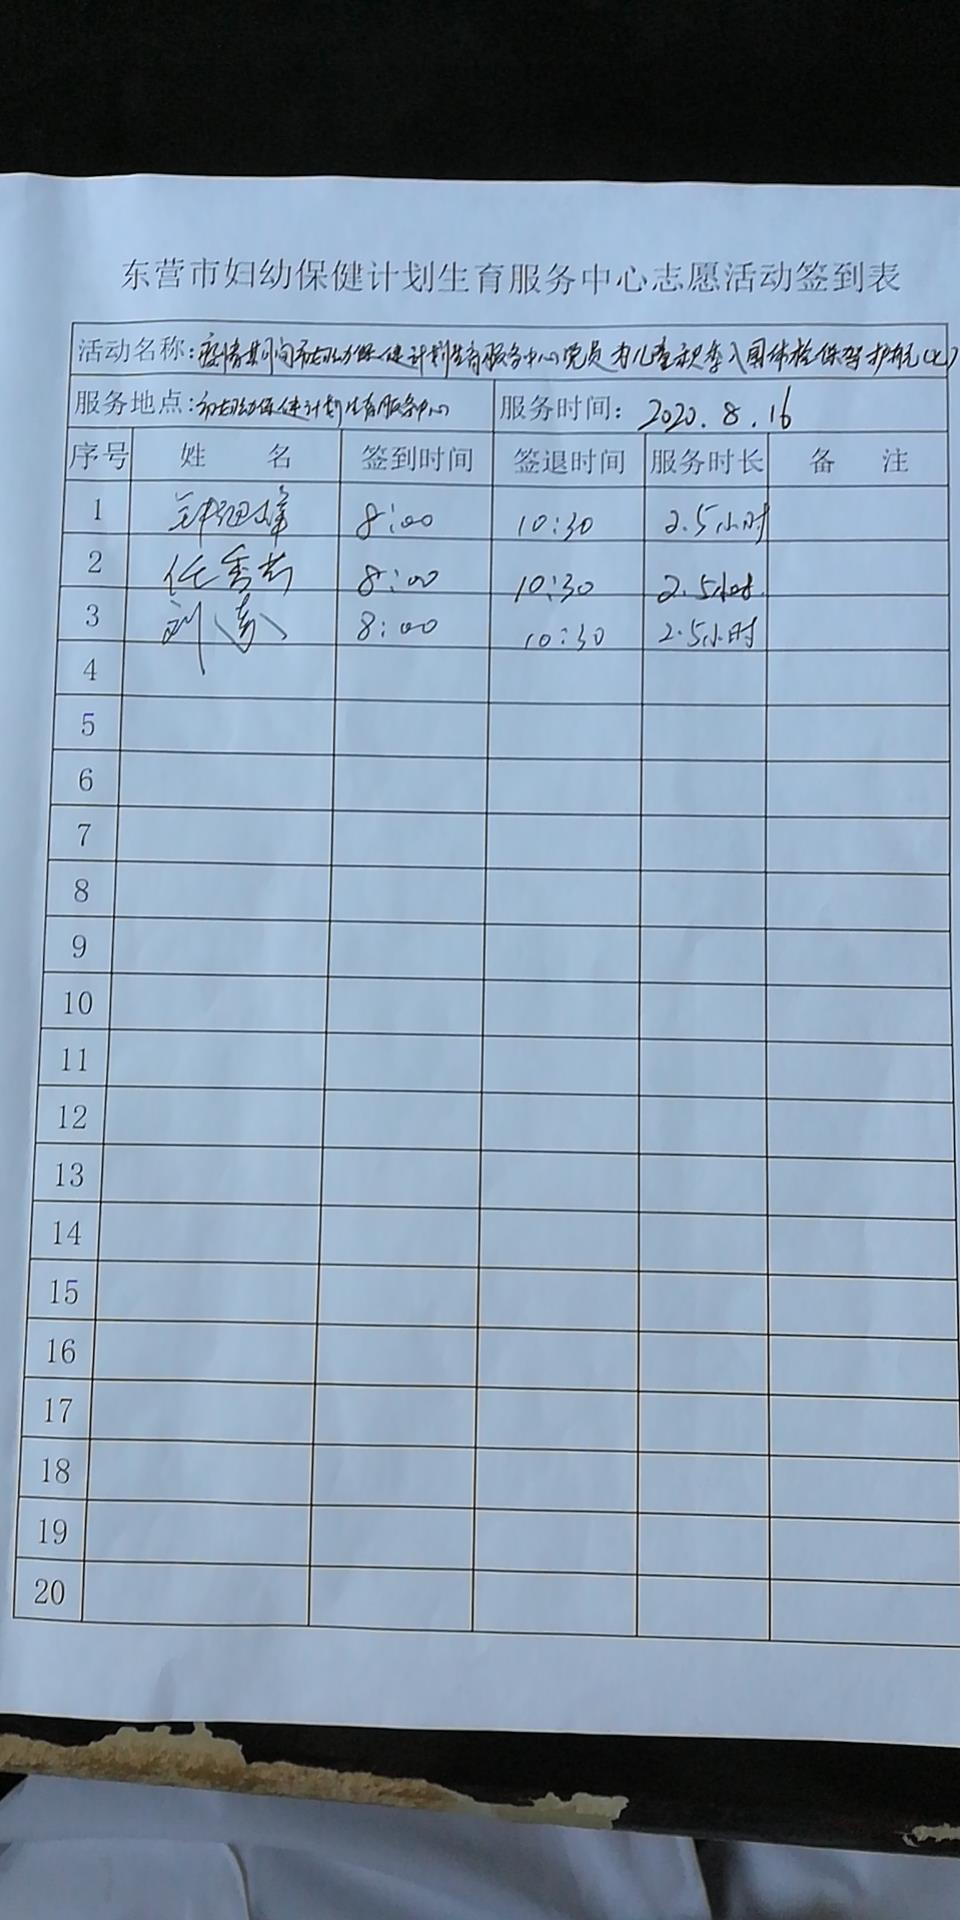 东营市妇幼保健计划生育服务中心志愿活动签到表
活动名称:疫情期间市妇幼保健计划生育服务中心党员为儿童秋季入园体检保驾护航(七)
服务地点:市妇幼保健计划生育服务中心 服务时间: 2020.8.16
序号 姓 名 签到时间 签退时间 服务时长 备 注
1 8:00 10:30 2.5小时
2 任秀芳 8:00 10:30 2.5小时
3 刘 8:00 10:30 2.5小时
4
5
6
7
8
9
10
11
12
13
14
15
16
17
18
19
20